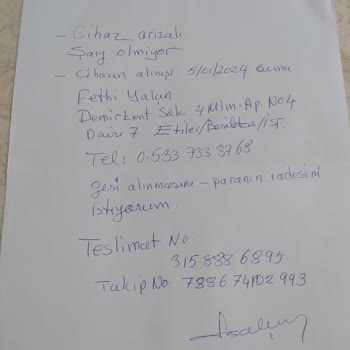 - Cihaz arızalı
Şarj olmıyor
- Cihazın alınışı 5/01/2024 cuma
Fethi Yalçın
Demirkent Sok 4 Mim. Ap. No 4
Daire 7 Etiler/Beşiktaş/İst.
Tel: 0.533 733 8768
geri alınmasını - paranın iadesini
istiyorum.
Teslimat No
315888 6895
Takip No: 7886 74102 993